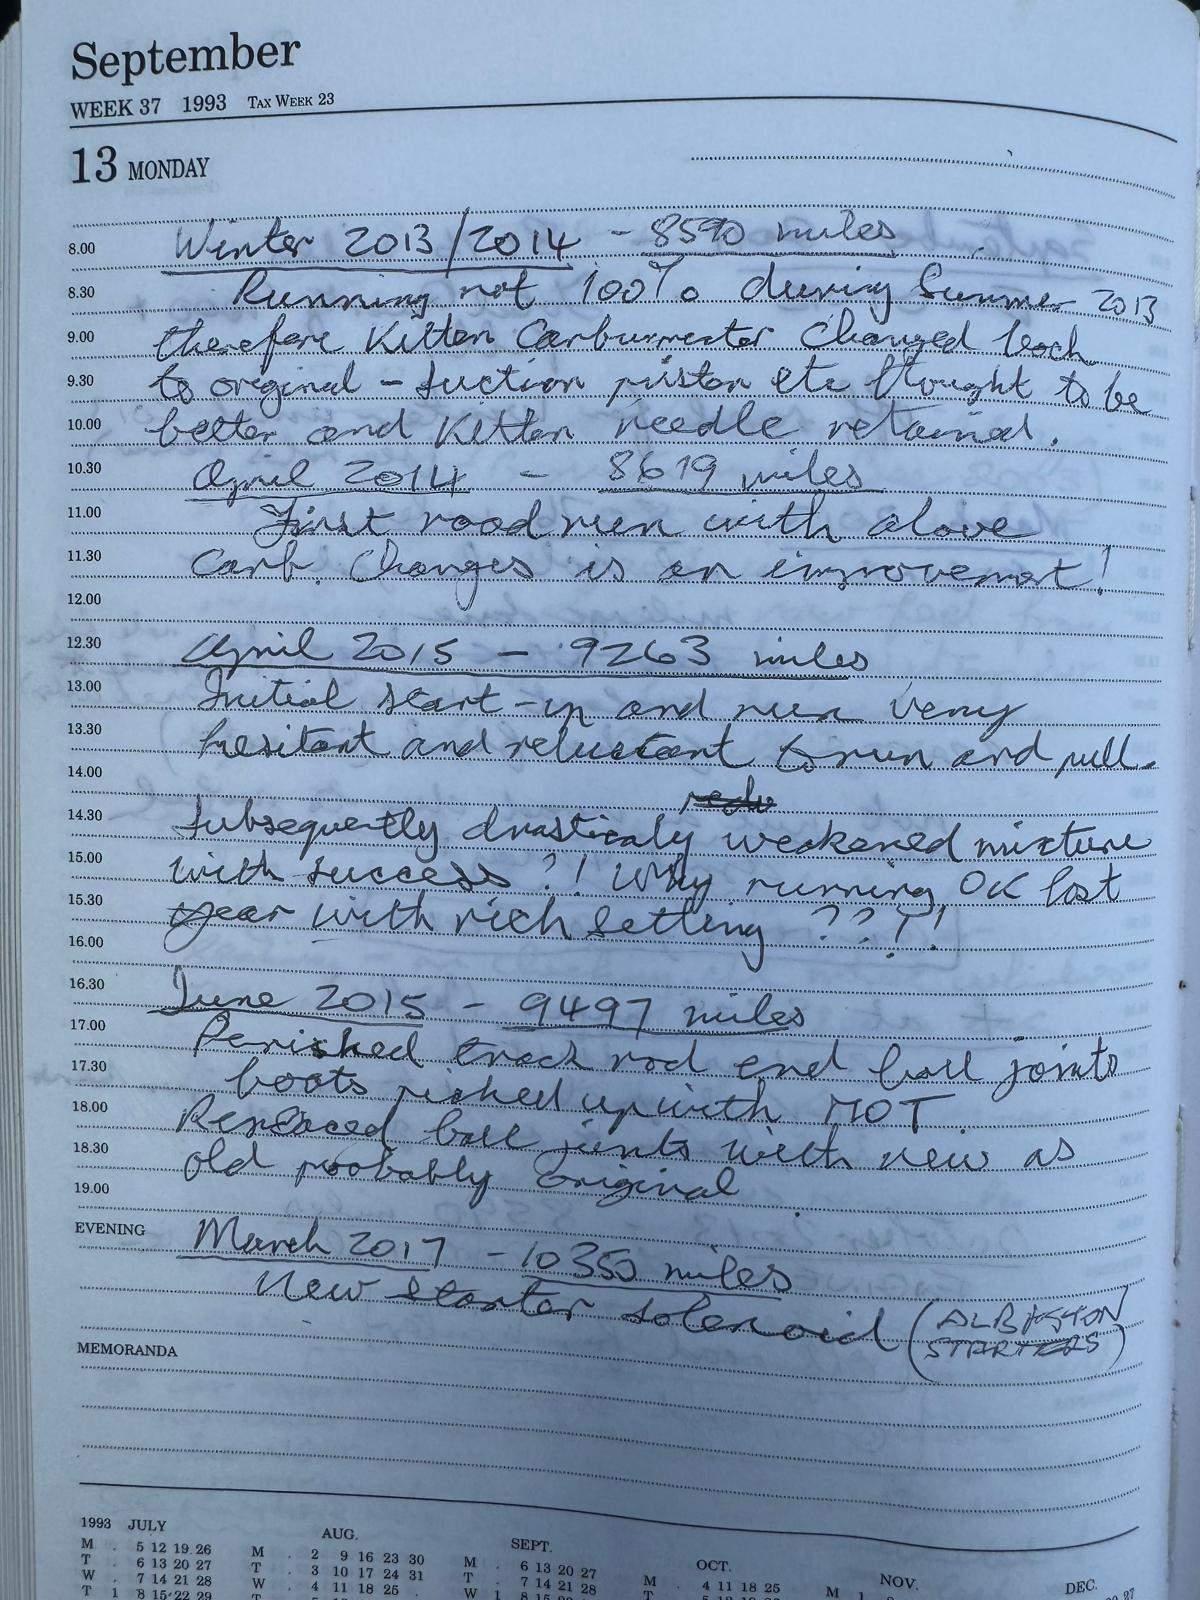 September
WEEK 37 1993 TAX WEEK 23
13 MONDAY
8.00 Winter 2013/2014 - 8590 miles
8.30 Running not 100% during Summer 2013
9.00 therefore Kitten Carburretter Changed back
9.30 to original - suction piston etc thought to be
10.00 better and Kitten needle retained.
10.30 April 2014 - 8619 miles
11.00 First road run with above
11.30 Carb. Changes is an improvement!
12.00
12.30 April 2015 - 9263 miles
13.00 Initial start-up and run very
13.30 hesitant and reluctant to run and pull.
14.00
14.30 Subsequently drasticaly weakened mixture
15.00 with success ?! Why running OK last
15.30 year with rich setting ???!
16.00
16.30 June 2015 - 9497 miles
17.00 Perished track rod end ball joints
17.30 boots picked up with MOT.
18.00 Replaced ball joints with new as
18.30 old probably original
19.00
EVENING March 2017 - 10350 miles
New starter solenoid (ALBISTON
STARTERS)
MEMORANDA
1993 JULY AUG. SEPT. OCT. NOV. DEC.
M . 5 12 19 26 M . 2 9 16 23 30 M . 6 13 20 27 M . 4 11 18 25 M 1
T . 6 13 20 27 T . 3 10 17 24 31 T . 7 14 21 28 T
W . 7 14 21 28 W . 4 11 18 25 . W 1 8 15
T 1 8 15 22 29 T